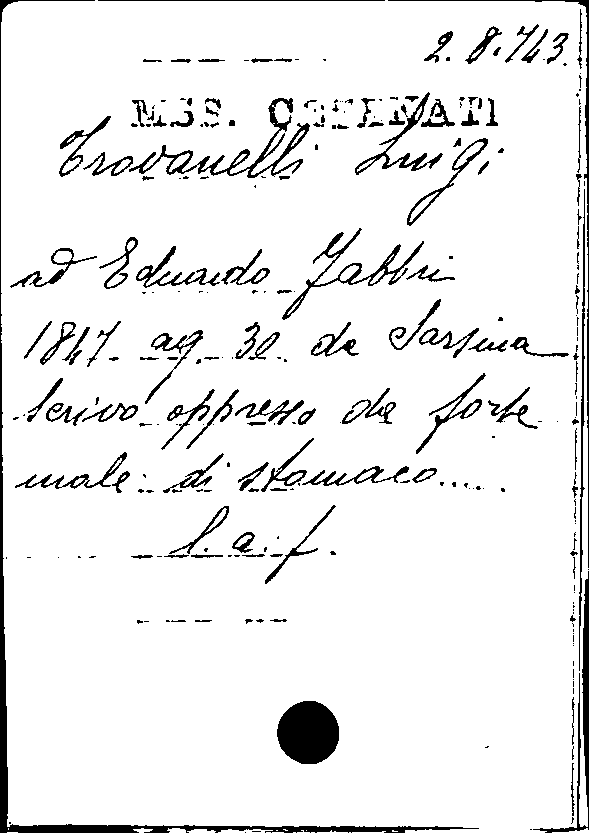 2.8.743.
MSS. CESENATI
Trovanelli Luigi
ad Eduardo Fabbri
1847 ag. 30 da Sarsina
Scrivo oppresso da forte
male di stomaco....
l. a. f.